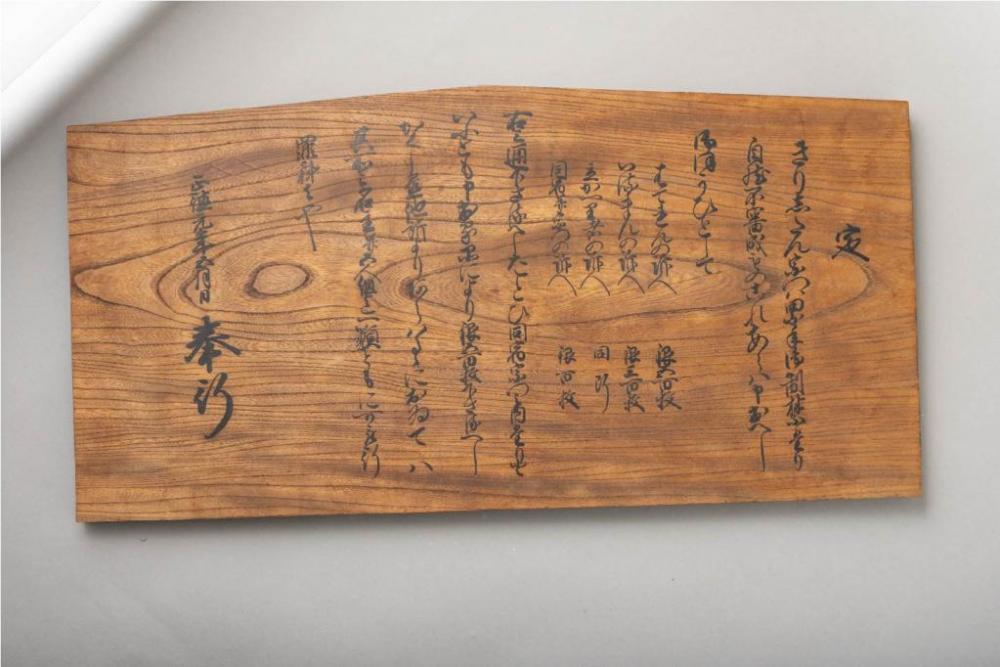 定
きりしたん宗門ハ累年御制禁たり
自然不審成ものこれあらハ申出へし
御ほうひとして
はてれんの訴人 銀五百枚
いるまんの訴人 銀三百枚
立かへり者の訴人 同断
同宿并宗門の訴人 銀百枚
右之通下さるへしたとひ同宿宗門之内たりと
いふとも申出る品により銀五百枚下さるへし
かくし置他所よりあらはるゝにおゐてハ
其所之名主并五人組迄一類ともに可被行
罪科者也
正徳元年五月日 奉行